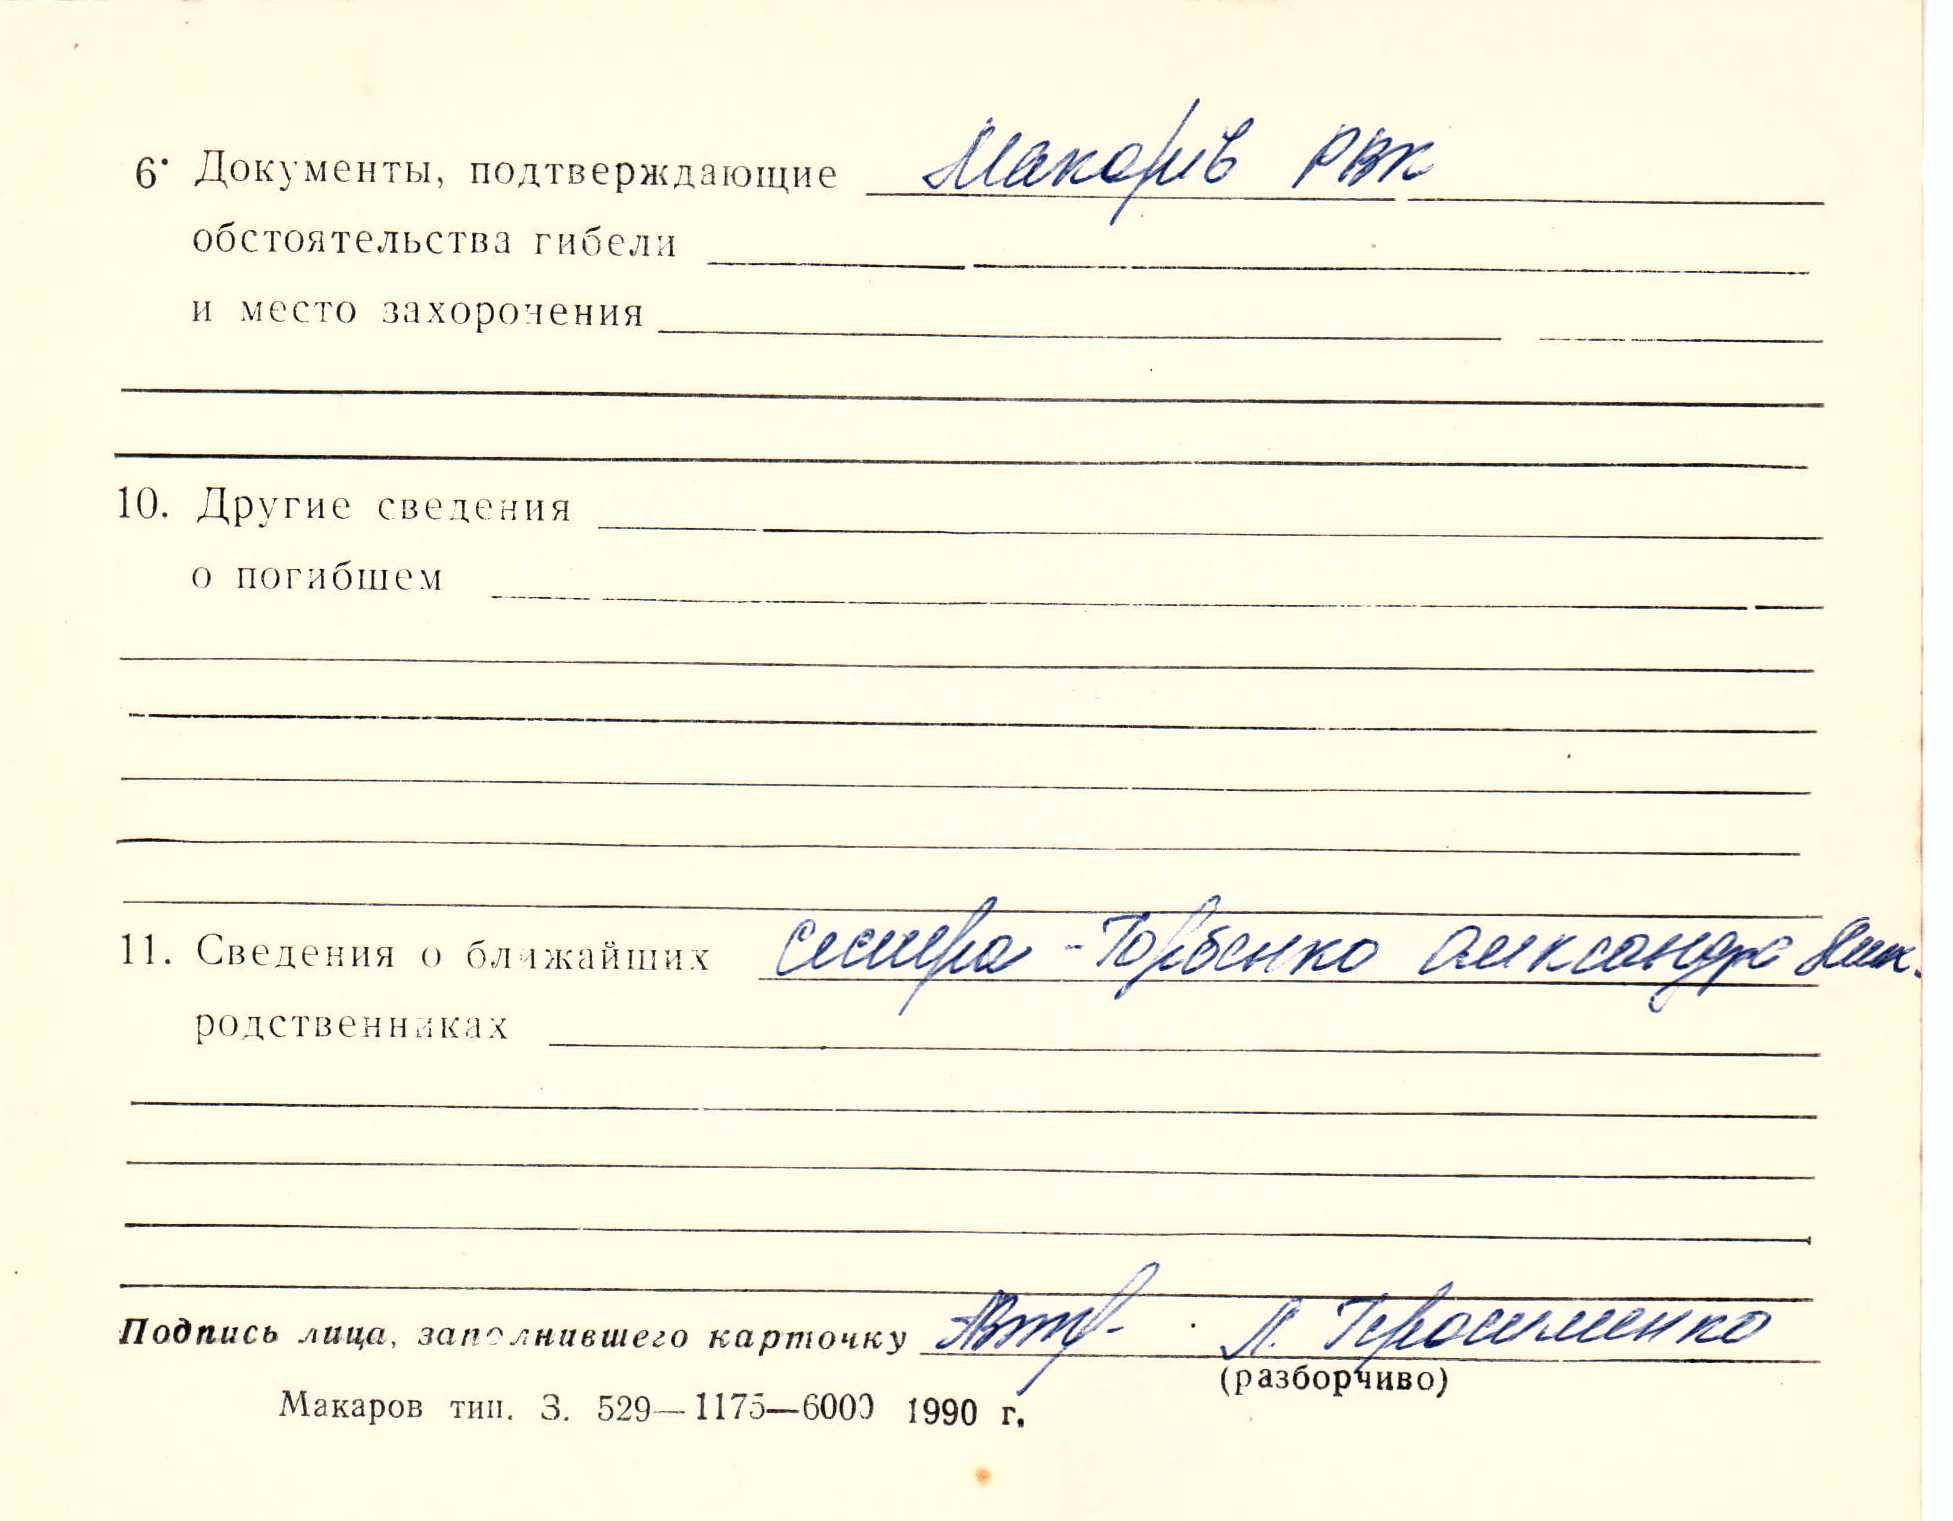 6. Документы, подтверждающие Макарів РВК
обстоятельства гибели
и место захоронения
10. Другие сведения
о погибшем
11. Сведения о ближайших сестра - Горбенко Александра Ник.
родственниках
Подпись лица, заполнившего карточку Л. Герасименко
(разборчиво)
Макаров тип. З. 529—1175—6000 1990 г.